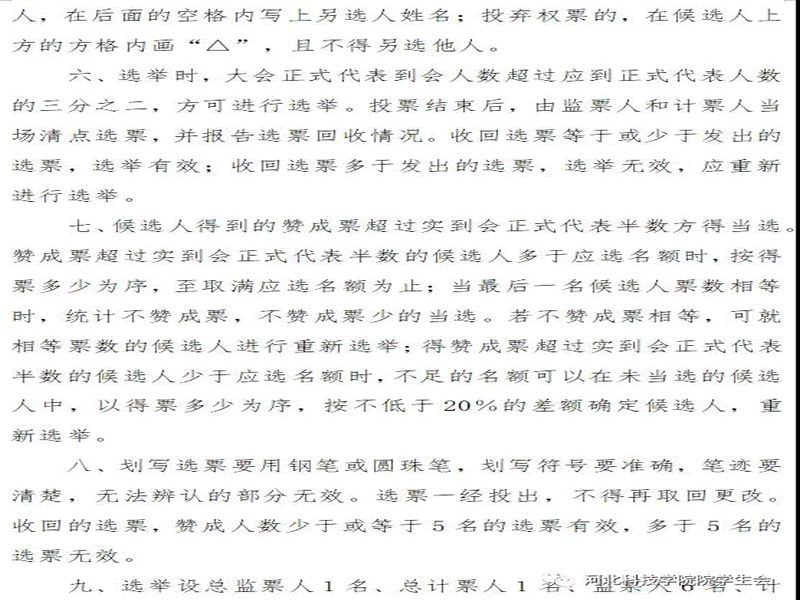 人，在后面的空格内写上另选人姓名；投弃权票的，在候选人上
方的方格内画“△”，且不得另选他人。
六、选举时，大会正式代表到会人数超过应到正式代表人数
的三分之二，方可进行选举。投票结束后，由监票人和计票人当
场清点选票，并报告选票回收情况。收回选票等于或少于发出的
选票，选举有效；收回选票多于发出的选票，选举无效，应重新
进行选举。
七、候选人得到的赞成票超过实到会正式代表半数方得当选。
赞成票超过实到会正式代表半数的候选人多于应选名额时，按得
票多少为序，至取满应选名额为止；当最后一名候选人票数相等
时，统计不赞成票，不赞成票少的当选。若不赞成票相等，可就
相等票数的候选人进行重新选举；得赞成票超过实到会正式代表
半数的候选人少于应选名额时，不足的名额可以在未当选的候选
人中，以得票多少为序，按不低于20%的差额确定候选人，重
新选举。
八、划写选票要用钢笔或圆珠笔，划写符号要准确，笔迹要
清楚，无法辨认的部分无效。选票一经投出，不得再取回更改。
收回的选票，赞成人数少于或等于5名的选票有效，多于5名的
选票无效。
九、选举设总监票人1名、总计票人1名、监票人6名、计
河北科技学院院学生会